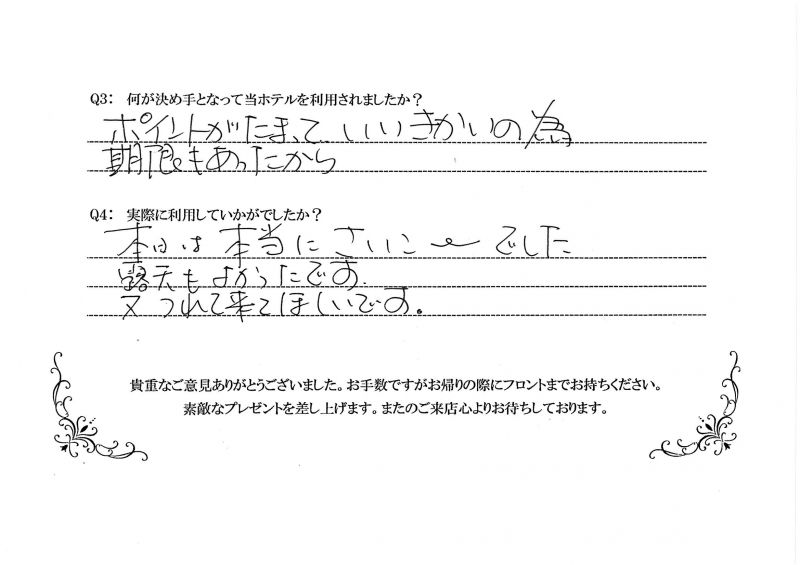 Q3: 何が決め手となって当ホテルを利用されましたか？
ポイントがたまって いいきかいの為
期限もあったから
Q4: 実際に利用していかがでしたか？
本日は本当に さいこーでした
露天もよかったです.
又つれて来てほしいです。
貴重なご意見ありがとうございました。お手数ですがお帰りの際にフロントまでお持ちください。
素敵なプレゼントを差し上げます。またのご来店心よりお待ちしております。